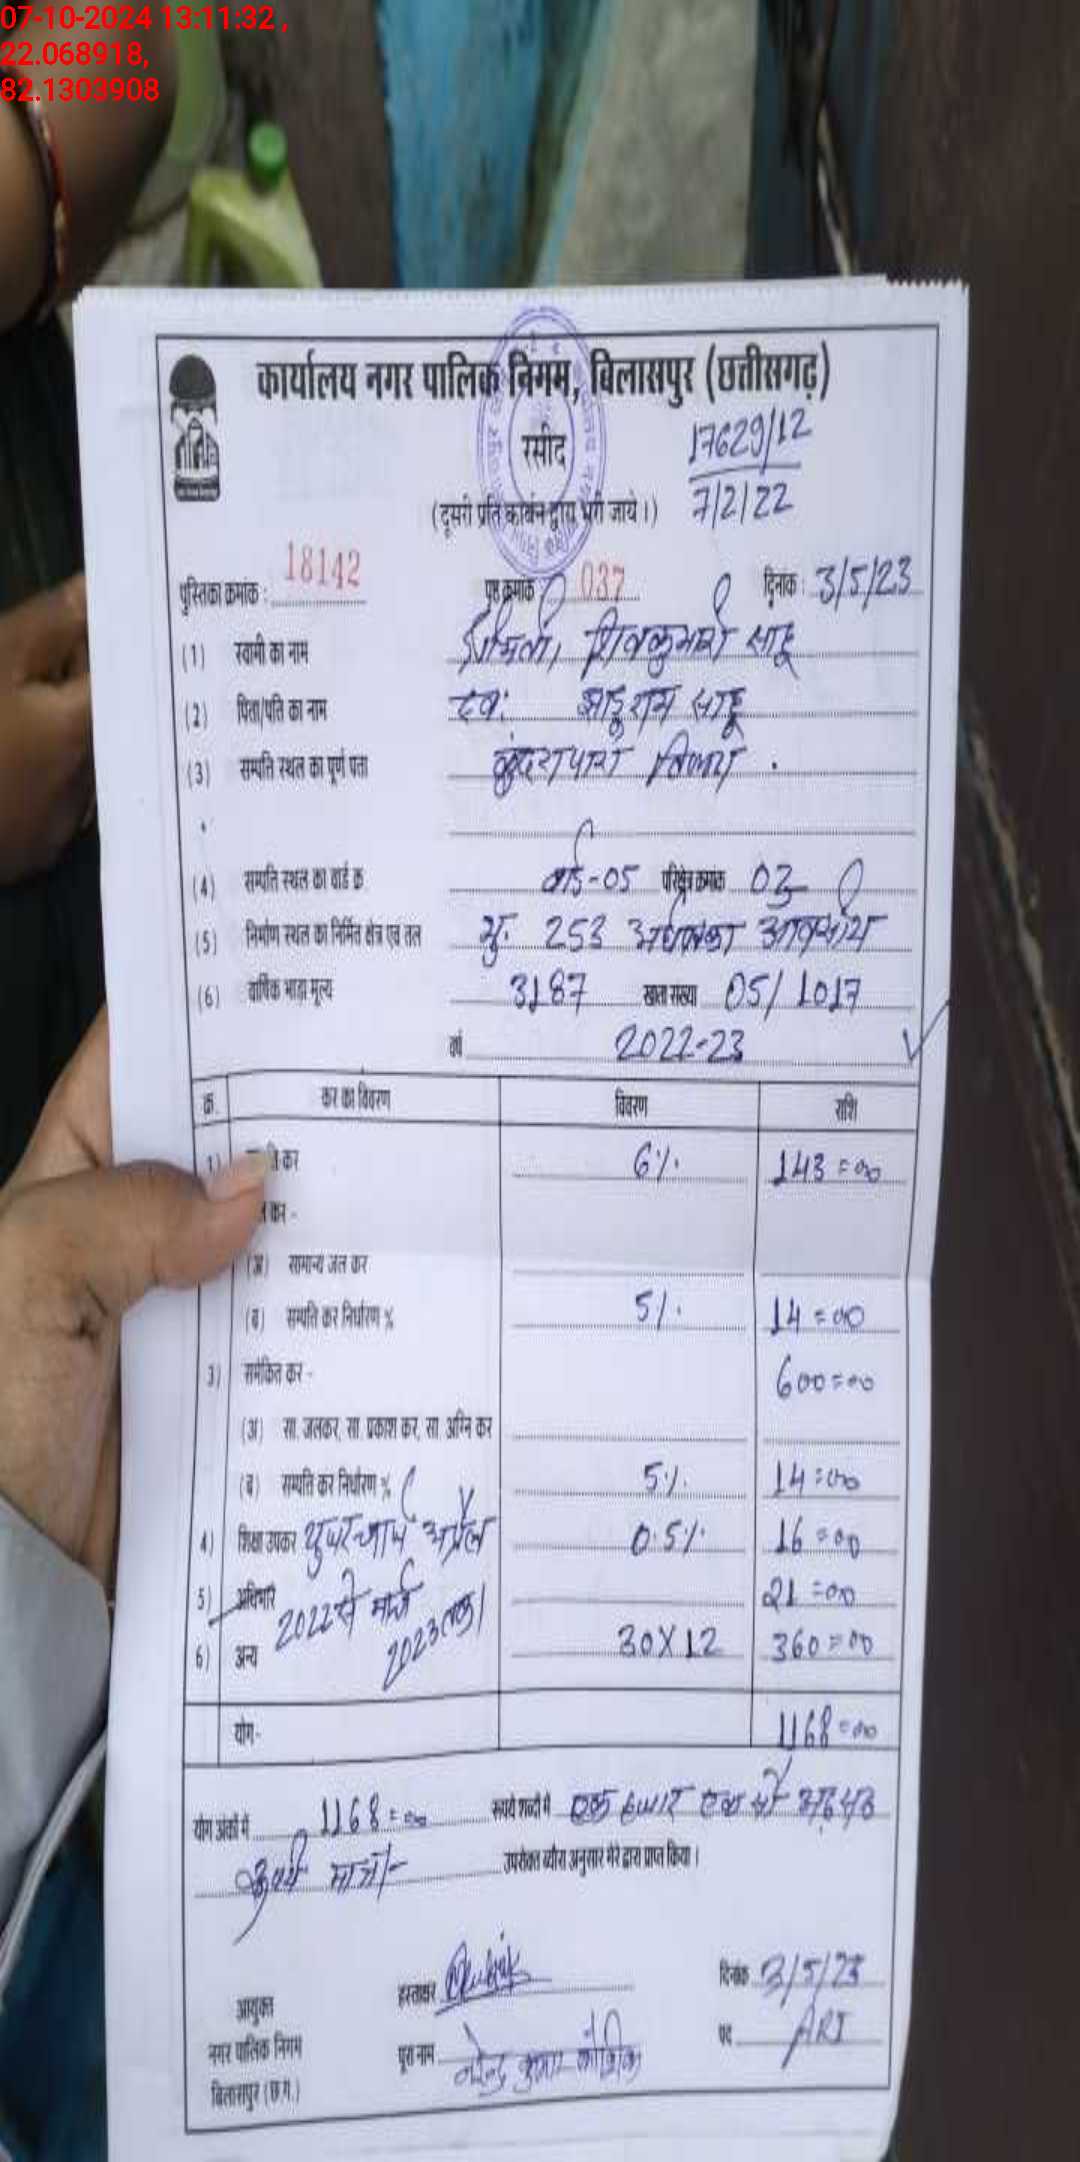 07-10-2024 13:11:32 ,
22.068918,
82.1303908
कार्यालय नगर पालिक निगम, बिलासपुर (छत्तीसगढ़)
रसीद
17629/12
7/2/22
(दूसरी प्रति कार्बन द्वारा भरी जाये।)
पुस्तिका क्रमांक : 18142 पृष्ठ क्रमांक 037 दिनांक : 3/5/23
(1) स्वामी का नाम श्रीमती, शिवकुमारी साहू
(2) पिता/पति का नाम स्व: साहू
(3) सम्पत्ति स्थल का पूर्ण पता
(4) सम्पत्ति स्थल का वार्ड क्र. वार्ड-05 परिक्षेत्र क्रमांक 03
(5) निर्माण स्थल का निर्मित क्षेत्र एवं तल भू. 253 अर्धपक्का आवासीय
(6) वार्षिक भाड़ा मूल्य 3187 खाता संख्या 05/1017
वर्ष 2022-23
क्र. कर का विवरण विवरण राशि
1) कर 6% 143=00
कर -
(अ) सामान्य जल कर
(ब) सम्पत्ति कर निर्धारण % 5% 14=00
3) समेकित कर - 600=00
(अ) सा. जलकर, सा. प्रकाश कर, सा. अग्नि कर
(ब) सम्पत्ति कर निर्धारण % 5% 14=00
4) शिक्षा उपकर यूजर चार्ज अप्रैल 0.5% 16=00
5) अधिभार 2022 से मार्च 21=00
6) अन्य 2023 तक। 30X12 360=00
योग- 1168=00
योग अंकों में 1168=00 रूपये शब्दों में एक हजार एक सौ अड़सठ
रुपये मात्र/- उपरोक्त ब्यौरा अनुसार मेरे द्वारा प्राप्त किया।
आयुक्त हस्ताक्षर दिनांक 3/5/23
नगर पालिक निगम पूरा नाम नरेन्द्र कुमार कौशिक पद ARI
बिलासपुर (छ.ग.)